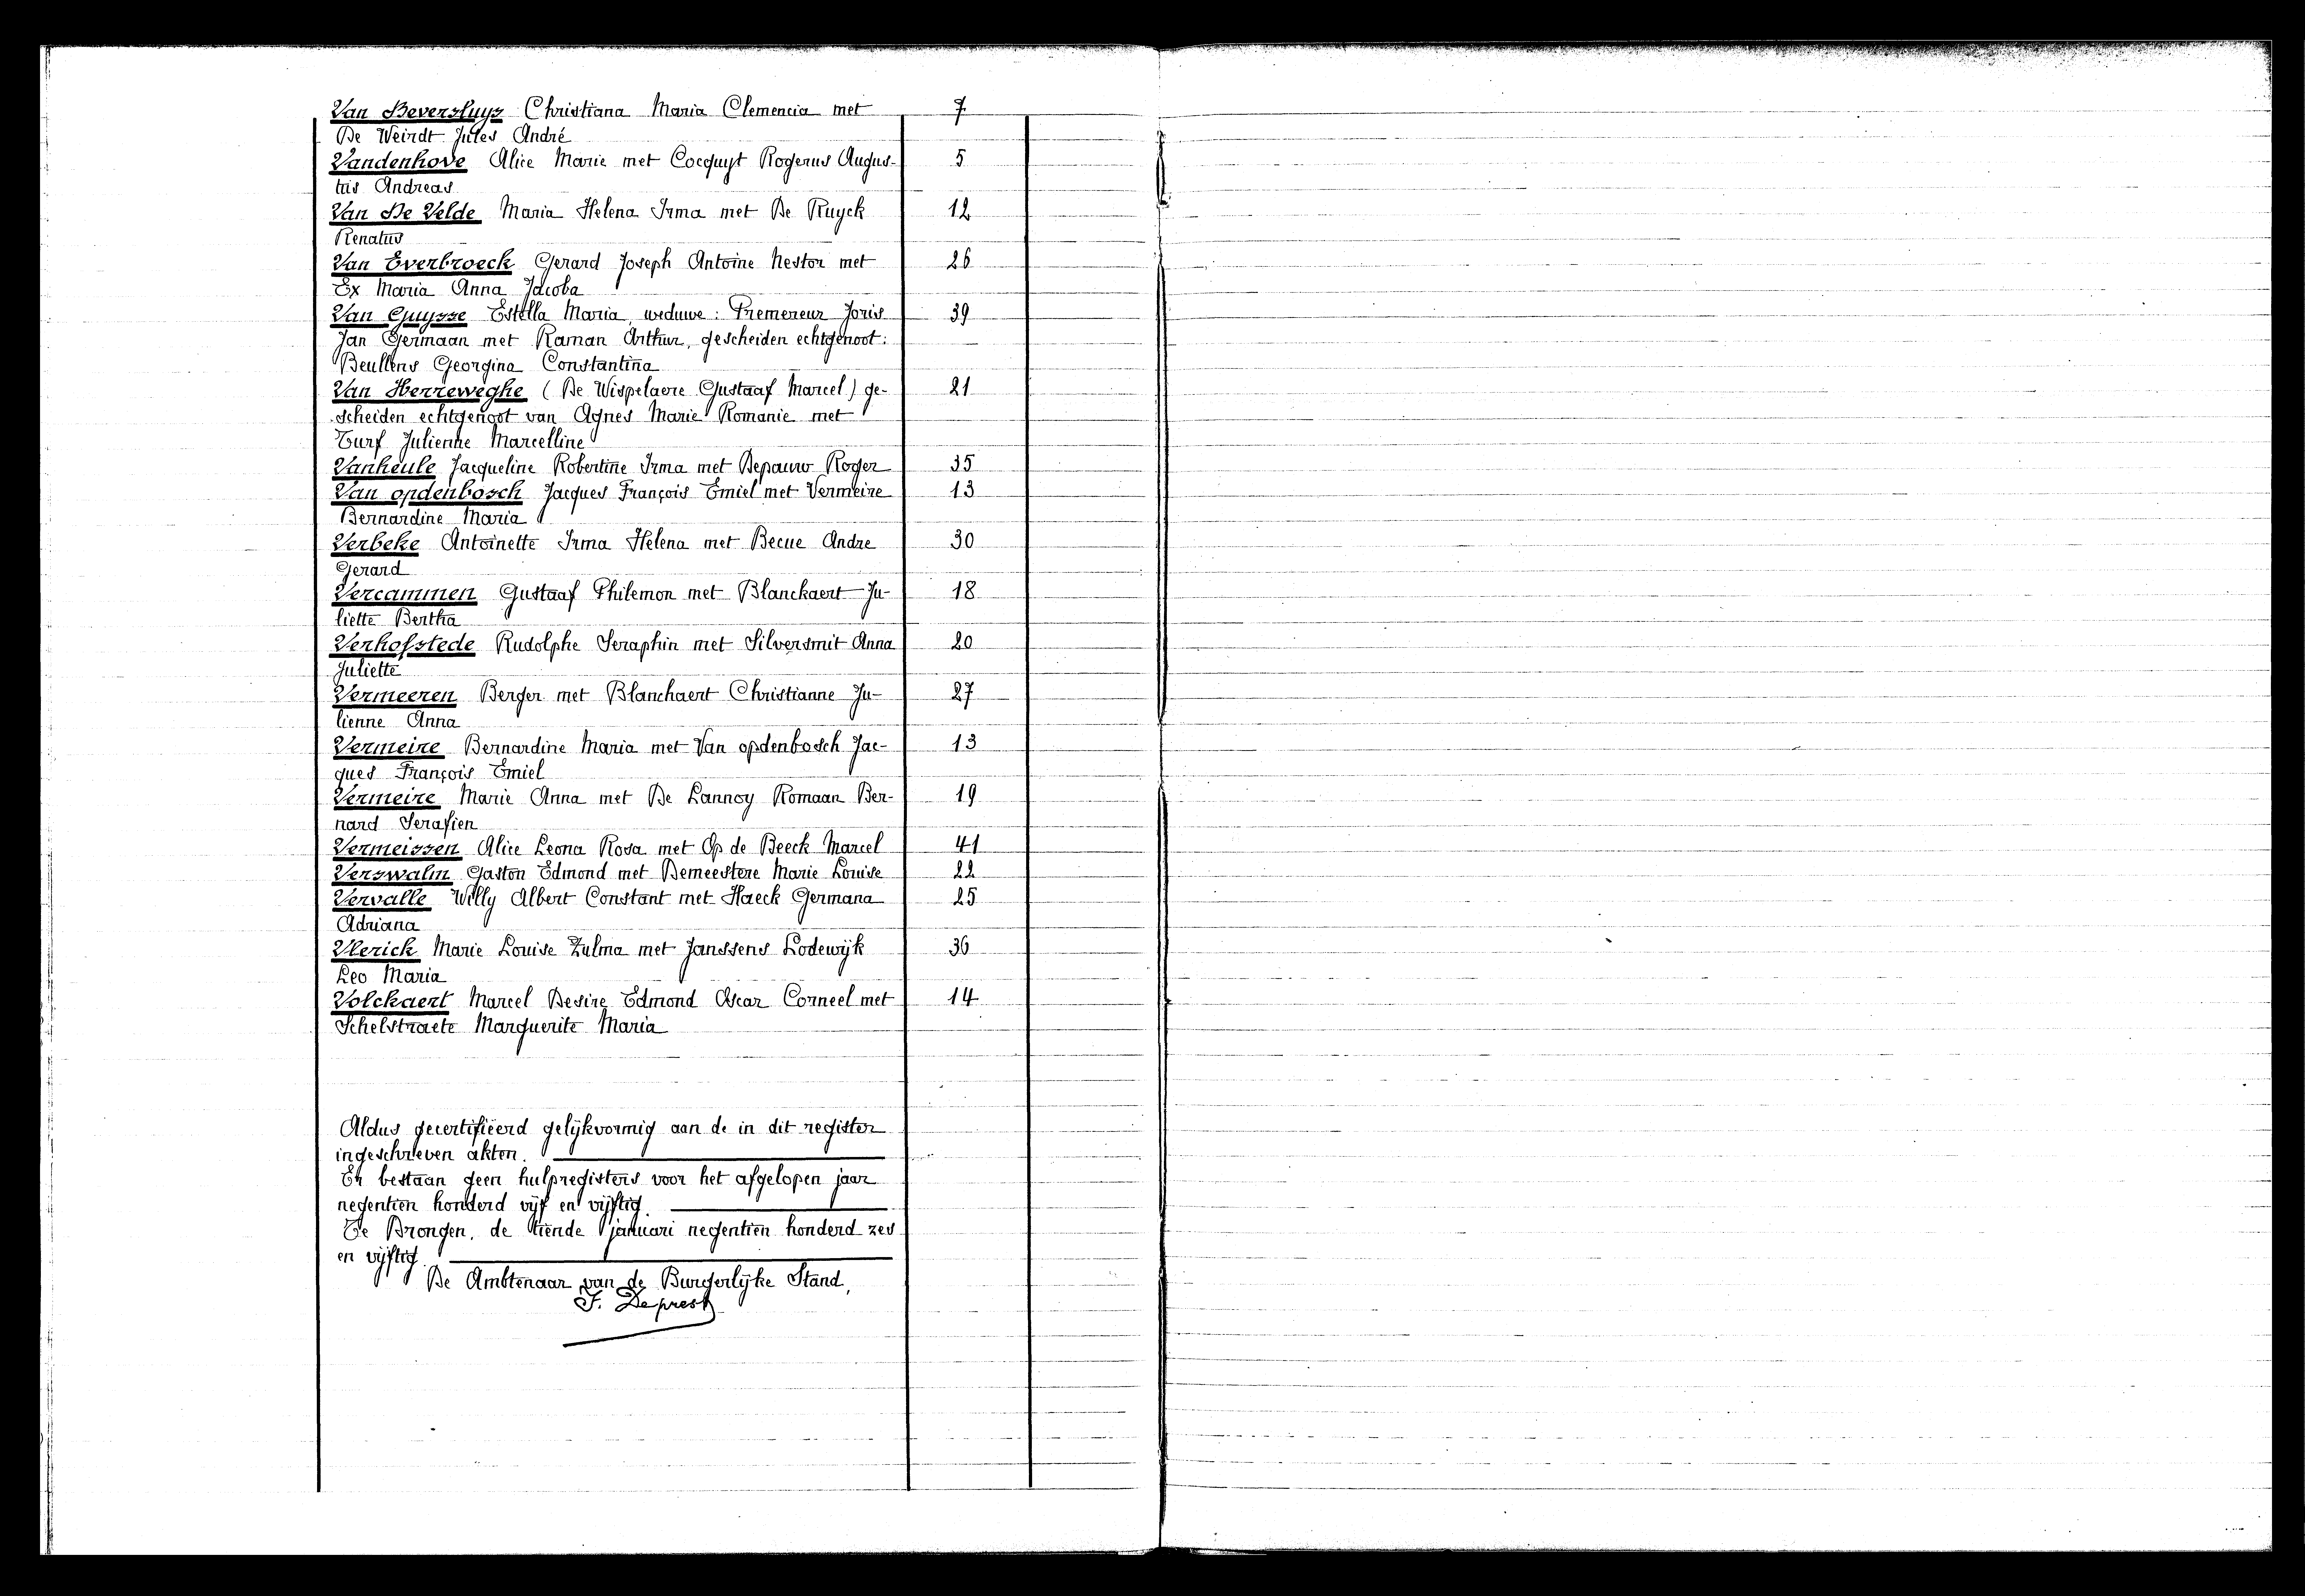 Van Beversluys Christiana Maria Clemencia met 7
De Weirdt Jules André
Vandenhove Alice Marie met Cocquyt Rogerus Augus- 5
tus Andreas
Van De Velde Maria Helena Irma met De Ruyck 12
Renatus
Van Everbroeck Gerard Joseph Antoine Nestor met 26
Ex Maria Anna Jacoba
Van Guysse Estella Maria, weduwe: Premereur Joris 39
Jan Germaan met Raman Arthur, gescheiden echtgenoot:
Beullens Georgina Constantina
Van Herreweghe (De Wispelaere Gustaaf Marcel) ge- 21
scheiden echtgenoot van Agnes Marie Romanie met
Turf Julienne Marcelline
Vanheule Jacqueline Robertine Irma met Depauw Roger 35
Van opdenbosch Jacques François Emiel met Vermeire 13
Bernardine Maria
Verbeke Antoinette Irma Helena met Becue Andre 30
Gerard
Vercammen Gustaaf Philemon met Blanckaert Ju- 18
liette Bertha
Verhofstede Rudolphe Seraphin met Silversmit Anna 20
Juliette
Vermeeren Berger met Blanchaert Christianne Ju- 27
lienne Anna
Vermeire Bernardine Maria met Van opdenbosch Jac- 13
ques François Emiel
Vermeire Marie Anna met De Lannoy Romaan Ber- 19
nard Serafien
Vermeissen Alice Leona Rosa met Op de Beeck Marcel 41
Verswalm Gaston Edmond met Demeestere Marie Louise 22
Vervalle Willy Albert Constant met Haeck Germana 25
Adriana
Vlerick Marie Louise Zulma met Janssens Lodewijk 36
Leo Maria
Volckaert Marcel Desire Edmond Oscar Corneel met 14
Schelstraete Marguerite Maria
Aldus gecertifieerd gelijkvormig aan de in dit register
ingeschreven akten.
Er bestaan geen hulpregisters voor het afgelopen jaar
negentien honderd vijf en vijftig.
Te Drongen, de tiende januari negentien honderd zes
en vijftig.
De Ambtenaar van de Burgerlijke Stand,
F. Deprest